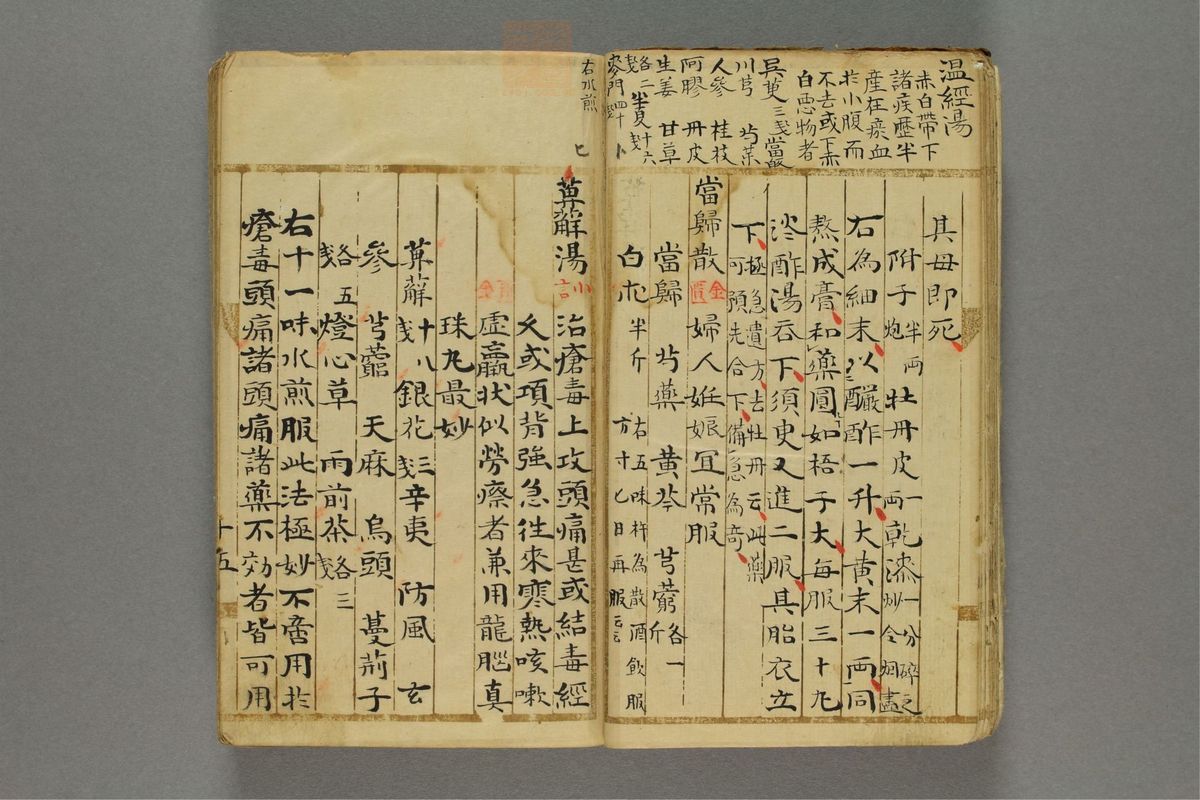 温經湯
赤白帶下
諸疾歷半
産在瘀血
於小腹而
不去或下赤
白悪物者
呉茰三戔當皈
川芎 芍薬
人參 桂枝
阿膠 丹皮
生姜 甘草
各二戔 半夏十六戔
麥門四十戔
右水煎
其母即死
附子半両炮 牡丹皮一両 乾漆一分碎之炒令烟盡
右為細末以釅酢一升大黄末一両同
熬成膏和藥圓如梧子大每服三十丸
淡酢湯吞下須臾又進二服具胎衣立
下極急遺方去牡丹云此藥可預先合下備急為奇
當歸散金匱婦人妊娠宜常服
當歸 芍藥 黄芩 芎藭各一斤
白朮半斤 右五味杵為散酒飲服方寸匕日再服云云
萆薢湯 治瘡毒上攻頭痛甚或結毒經
久或項背強急往來寒熱咳嗽
虛羸状似勞瘵者兼用龍腦真
珠丸最妙
萆薢十八戔 銀花三戔 辛夷 防風 玄
參 芎藭 天麻 烏頭 蔓荊子
各五戔 燈心草 雨前茶各三戔
右十一味水煎服此法極妙不啻用於
瘡毒頭痛諸頭痛諸藥不効者皆可用
十五